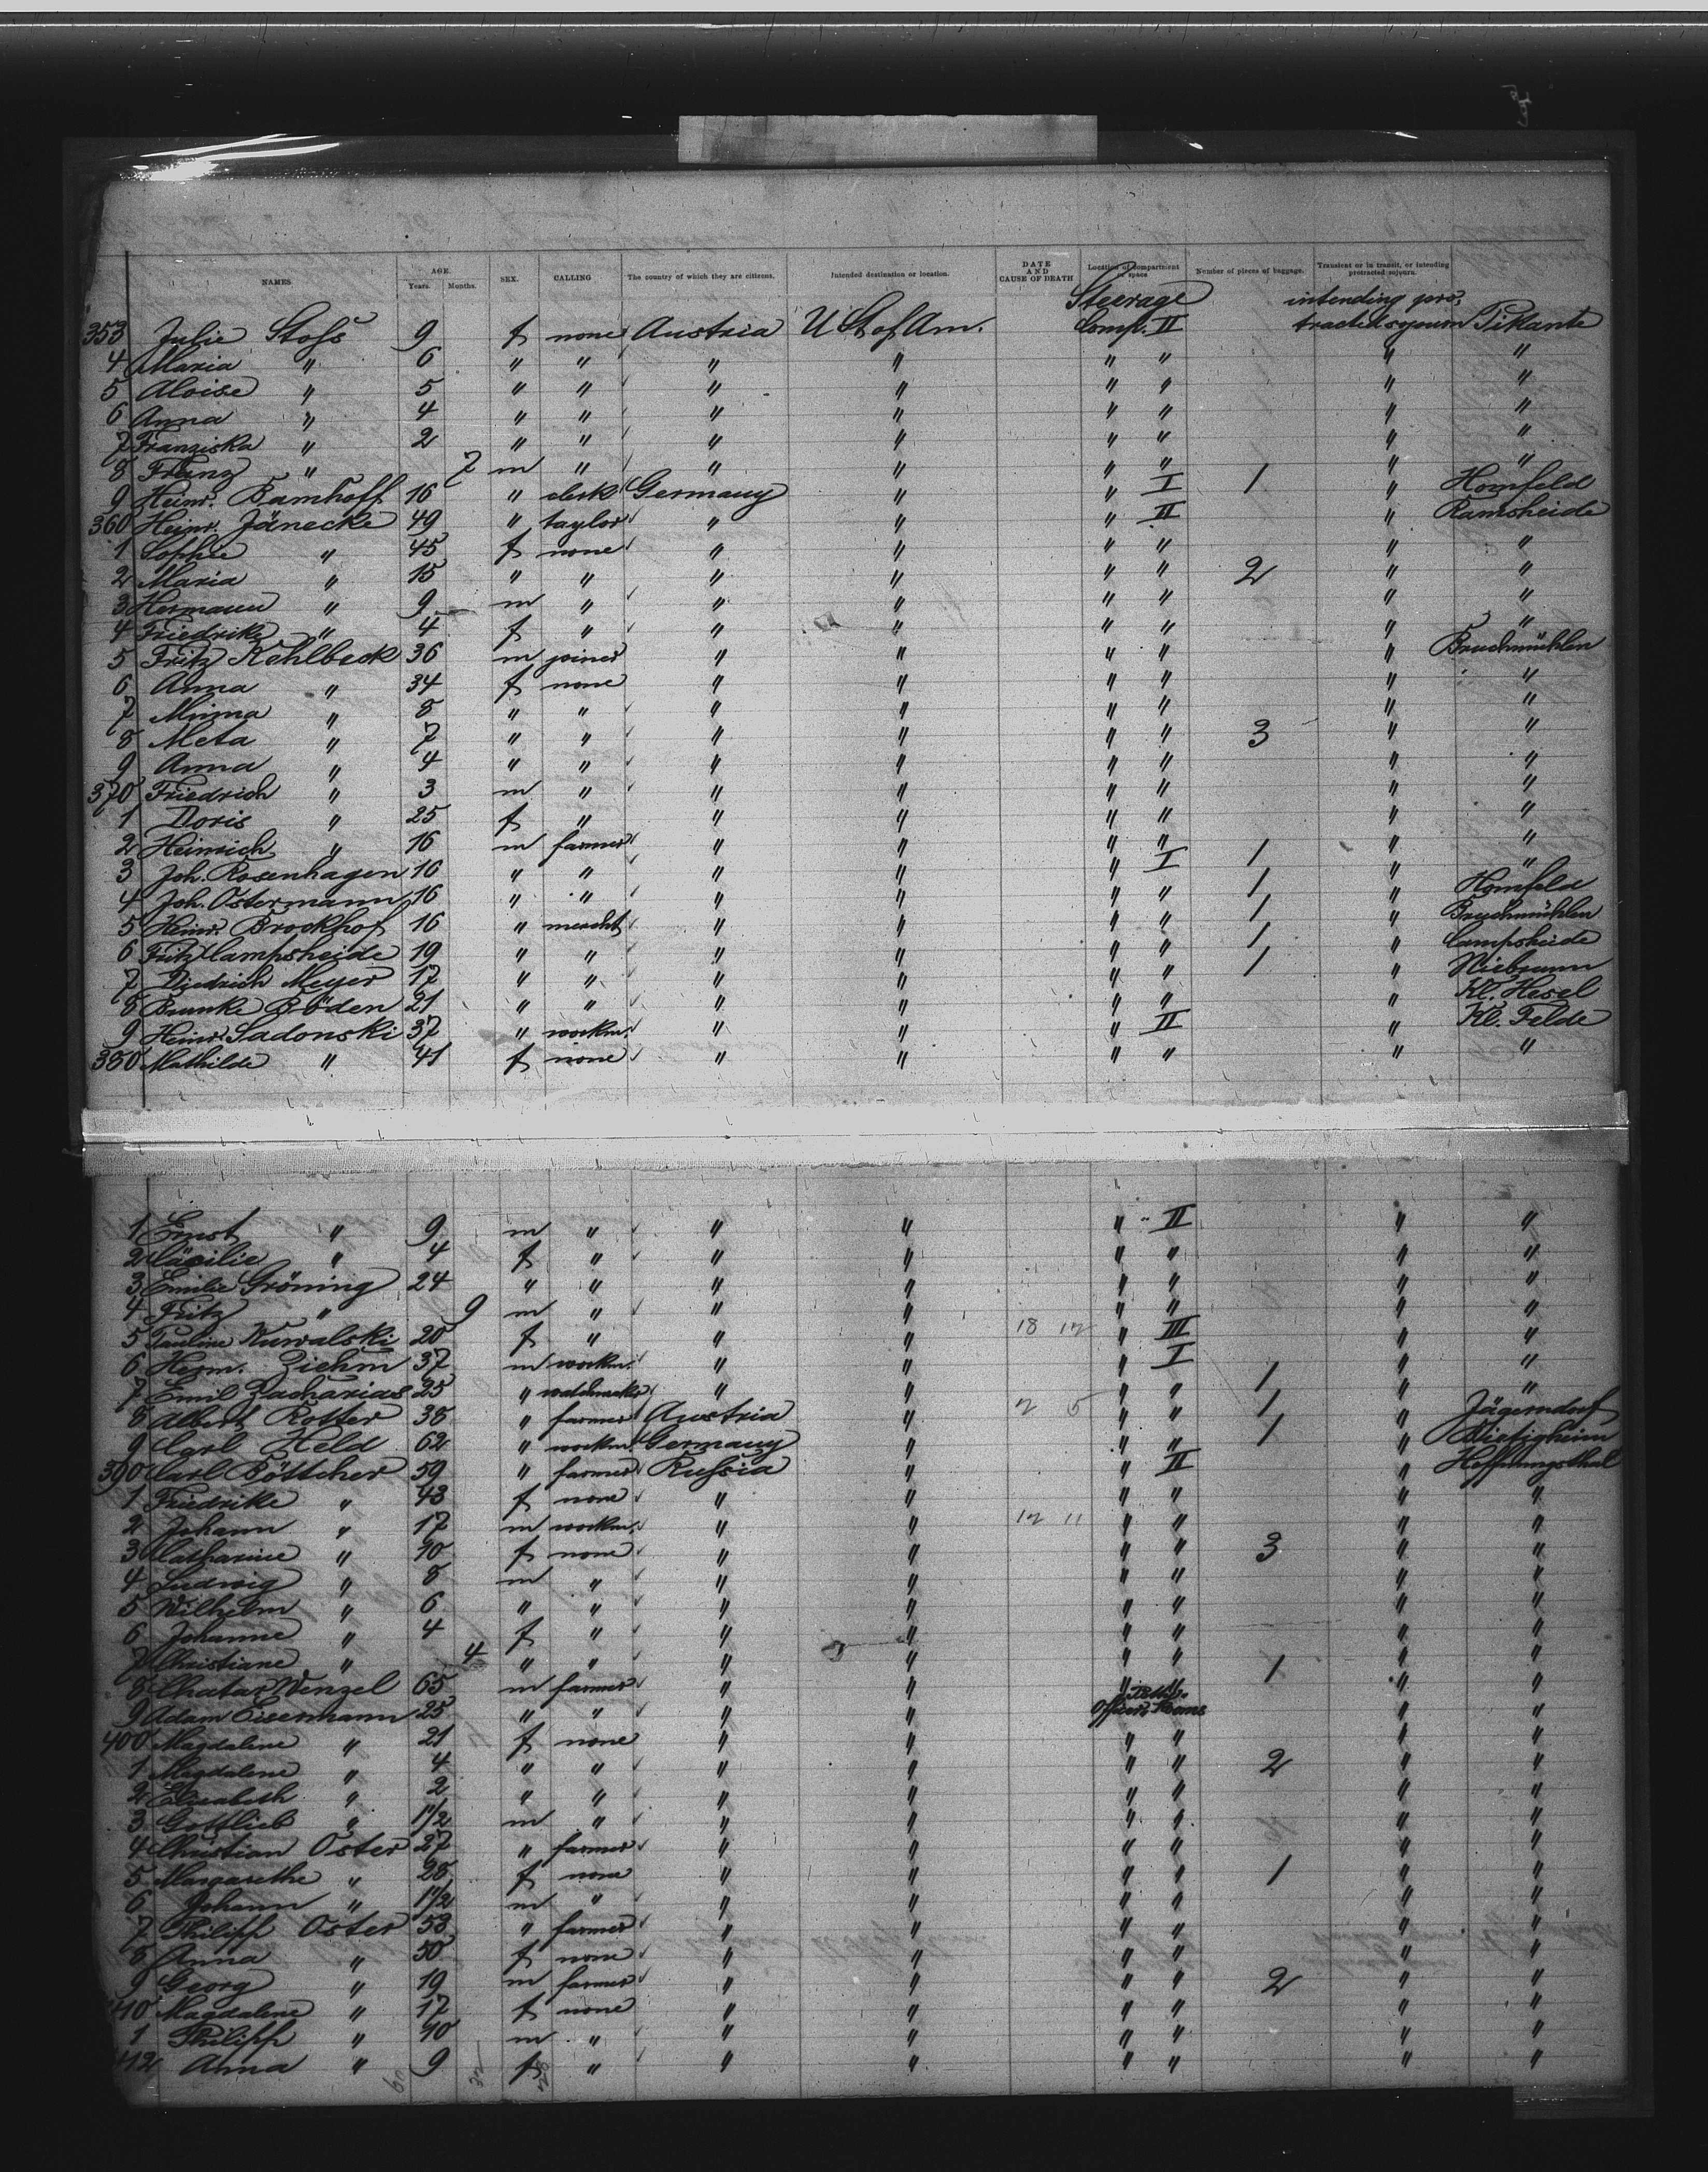 NAMES AGE. Years. Months. SEX. CALLING The country of which they are citizens. Intended destination or location. DATE AND CAUSE OF DEATH Location of compartment or space Number of pieces of baggage. Transient or in transit, or intending protracted sojourn.
353 Julie Stofs 9 f none Austria U St of Am. Steerage Comp. II intending pro- tracted sojourn Pikante
4 Maria " 6 " " " " " " " "
5 Aloise " 5 " " " " " " " "
6 Anna " 4 " " " " " " " "
7 Franziska " 2 " " " " " " " "
8 Franz " 7 m " " " " " " "
9 Heinr. Bamhoff 16 " clerk Germany " " I 1 " Homfeld
360 Heinr. Jänecke 49 " taylor " " " II " Ramsheide
1 Sophie " 45 f none " " " " " "
2 Maria " 15 " " " " " " 2 " "
3 Hermann " 9 m " " " " " " "
4 Friedrike " 4 f " " " " " " "
5 Fritz Kehlbeck 36 m joiner " " " " " Bruchmühlen
6 Anna " 34 f none " " " " " "
7 Minna " 8 " " " " " " " "
8 Meta " 7 " " " " " " 3 " "
9 Anna " 4 " " " " " " " "
370 Friedrich " 3 m " " " " " " "
1 Doris " 25 f " " " " " " "
2 Heinrich " 16 m farmer " " " " 1 " "
3 Joh. Rosenhagen 16 " " " " " I 1 " "
4 Joh. Ostermann 16 " " " " " " 1 " Homfeld
5 Heinr. Brockhof 16 " mercht " " " " 1 " Bruchmühlen
6 Fritz Campsheide 19 " " " " " " 1 " Campsheide
7 Diedrich Meyer 17 " " " " " " "
8 Brunke Böden 21 " " " " " " " Kl. Hesel
9 Heinr. Sadonski 37 " workm. " " " II " Kl. Felde
380 Mathilde " 41 f none " " " " " "
1 Ernst " 9 m " " " " II " "
2 Cäcilie " 4 f " " " " " " "
3 Emilie Gröning 24 " " " " " " " "
4 Fritz " 9 m " " " " " " "
5 Pauline Kuwalski 20 f " " " 18 12 " III " "
6 Herm. Ziehm 37 m workm. " " " I 1 " "
7 Emil Zacharias 25 " " " " " 1 " "
8 Albert Rotter 38 " farmer Austria " 2 5 " " 1 " Jägerndorf
9 Carl Held 62 " workm. Germany " " " " Bietigheim
390 Carl Böttcher 59 " farmer Rufsia " " II " Hoffnungsthal
1 Friedrike " 43 f none " " " " " "
2 Johann " 17 m workm. " " 12 11 " " " "
3 Catharine " 10 f none " " " " 3 " "
4 Ludwig " 8 m " " " " " " "
5 Wilhelm " 6 " " " " " " " "
6 Johanne " 4 f " " " " " " "
7 Christiane " 4 " " " " " " 1 " "
8 Wenzel 65 m farmer " " " " " "
9 Adam Eisermann 25 " " " " Officers " "
400 Magdalene " 21 f none " " " " " "
1 Magdalene " 4 " " " " " " 2 " "
2 Elisabeth " 2 " " " " " " " "
3 Gottlieb " 1 1/2 m " " " " " " "
4 Christian Oster 27 " farmer " " " " " "
5 Margarethe " 28 f none " " " " 1 " "
6 Johann " 1 1/2 m " " " " " " "
7 Philipp Oster 53 " farmer " " " " " "
8 Anna " 50 f none " " " " " "
9 Georg " 19 m farmer " " " " 2 " "
410 Magdalene " 17 f none " " " " " "
1 Philipp " 10 m " " " " " " "
412 Anna " 9 f " " " " " " "